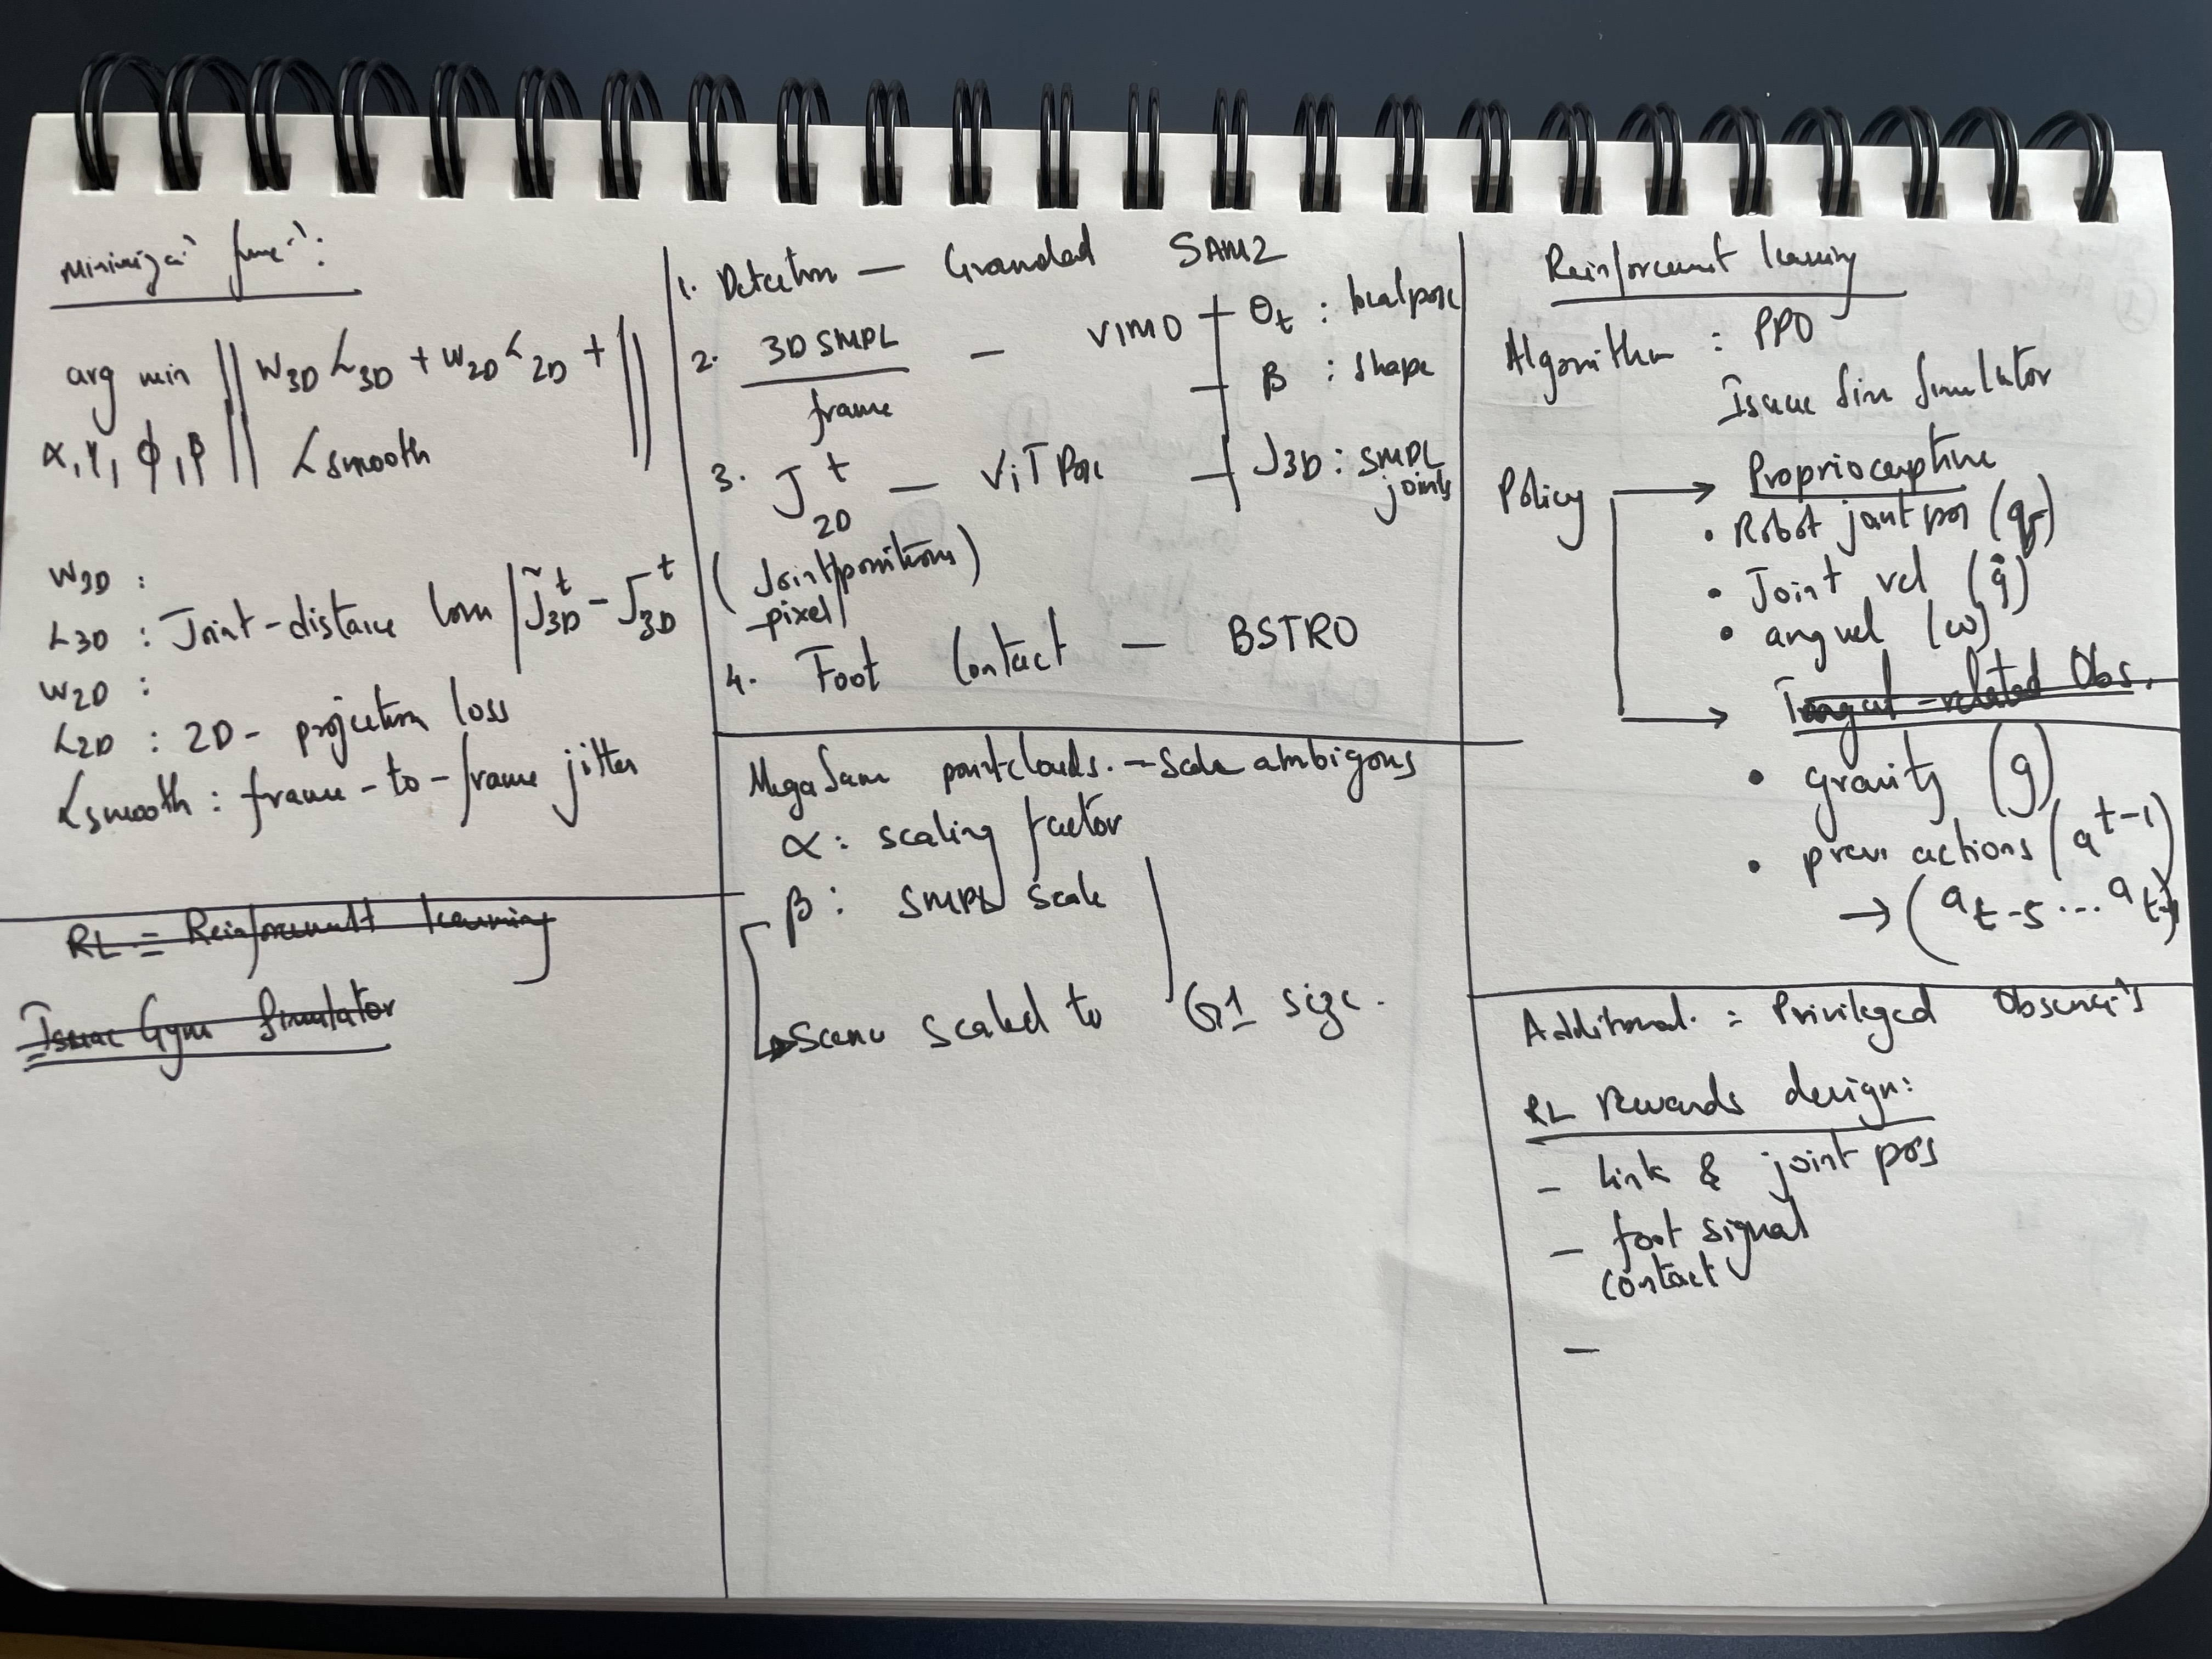 arg min || W3D L3D + W2D L2D + ||
α, γ, ϕ, β || Lsmooth
W3D :
L3D : Joint-distance loss | J̃3D^t - J3D^t
W2D :
L2D : 2D- projection loss
Lsmooth : frame-to-frame jitter
RL = Reinforcement learning
Isaac Gym Simulator
1. Detectn — Grounded SAM2
2. 3D SMPL — VIMO θt :
frame β : shape
3. J2D t — ViTPose J3D : SMPL joints
(Joint positions)
pixel
4. Foot Contact — BSTRO
MegaSam pointclouds. - Scale ambigous
α : scaling factor
β : SMPL scale
Scene scaled to G1 size.
Reinforcement learning
Algorithm : PPO
Isaac Sim Simulator
Policy
Proprioceptive
• Robot joint pos
• Joint vel (q̇)
• ang vel (ω)
Target-related Obs.
• gravity (g)
• prev actions (at-1)
→ (at-5 ....
Additional. = Privileged
RL rewards design:
- link & joint pos
- foot signal
contact
-